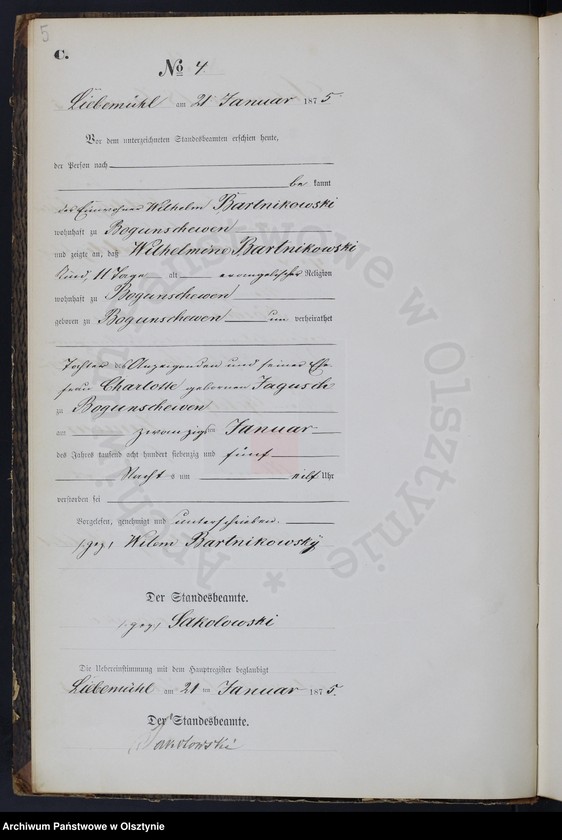 5
C.
No 4.
Liebemühl am 21 Januar 1875.
Vor dem unterzeichneten Standesbeamten erschien heute,
der Person nach
be kannt
der Einwohner Wilhelm Bartnikowski
wohnhaft zu Bogunschewen
und zeigte an, daß Wilhelmine Bartnikowski
Kind, 11 Tage alt evangelischer Religion
wohnhaft zu Bogunschewen
geboren zu Bogunschewen un verheirathet
Tochter des Anzeigenden und seiner Ehe
frau Charlotte gebornen Jagusch
zu Bogunschewen
am zwanzigsten Januar
des Jahres tausend acht hundert siebenzig und fünf
Nachts um eilf Uhr
verstorben sei
Vorgelesen, genehmigt und unterschrieben.
(gez) Wilem Bartnikowsky
Der Standesbeamte.
(gez) Sakolowski
Die Uebereinstimmung mit dem Hauptregister beglaubigt
Liebemühl am 21 ten Januar 1875.
Der Standesbeamte.
Sakolowski
Archiwum Państwowe w Olsztynie *
Archiwum Państwowe w Olsztynie